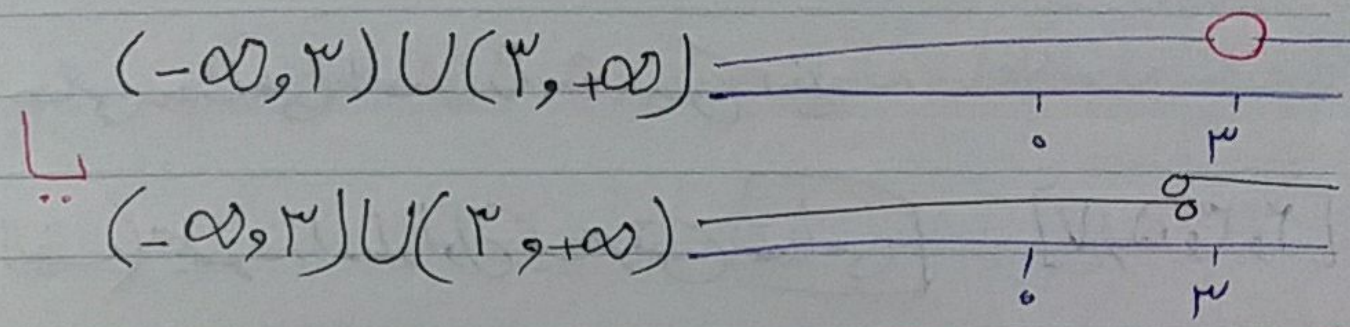 (-∞, ۳) ∪ (۳, +∞)
۰ ۳
یا
(-∞, ۳) ∪ (۳, +∞)
۰ ۳